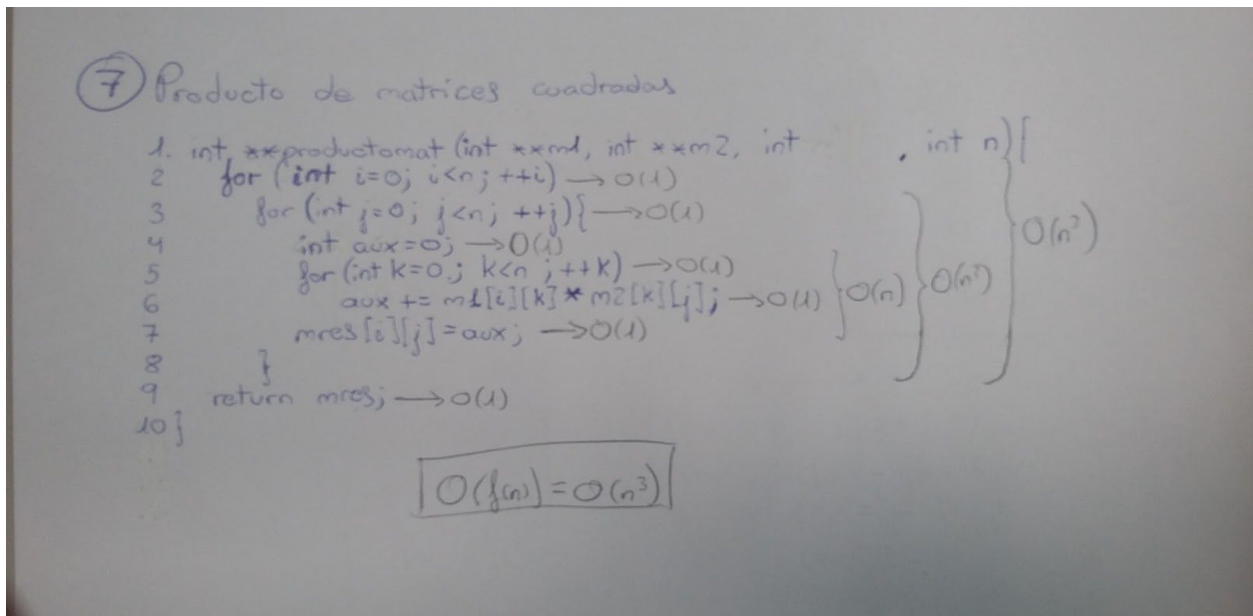 7 Producto de matrices cuadradas
1. int **productomat (int **m1, int **m2, int , int n){
2 for (int i=0; i<n; ++i) → O(1)
3 for (int j=0; j<n; ++j){ → O(1)
4 int aux=0; → O(1)
5 for (int k=0; k<n; ++k) → O(1)
6 aux += m1[i][k] * m2[k][j]; → O(1) } O(n) } O(n²) } O(n³)
7 mres[i][j]=aux; → O(1)
8 }
9 return mres; → O(1)
10 }
O(f(n)) = O(n³)